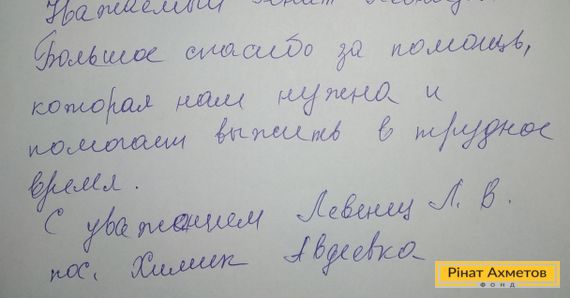 Уважаемый Ринат Леонидович
Большое спасибо за помощь,
которая нам нужна и
помогает выжить в трудное
время.
С уважением Левенец Л. В.
пос. Химик Авдеевка
Рінат Ахметов
ФОНД